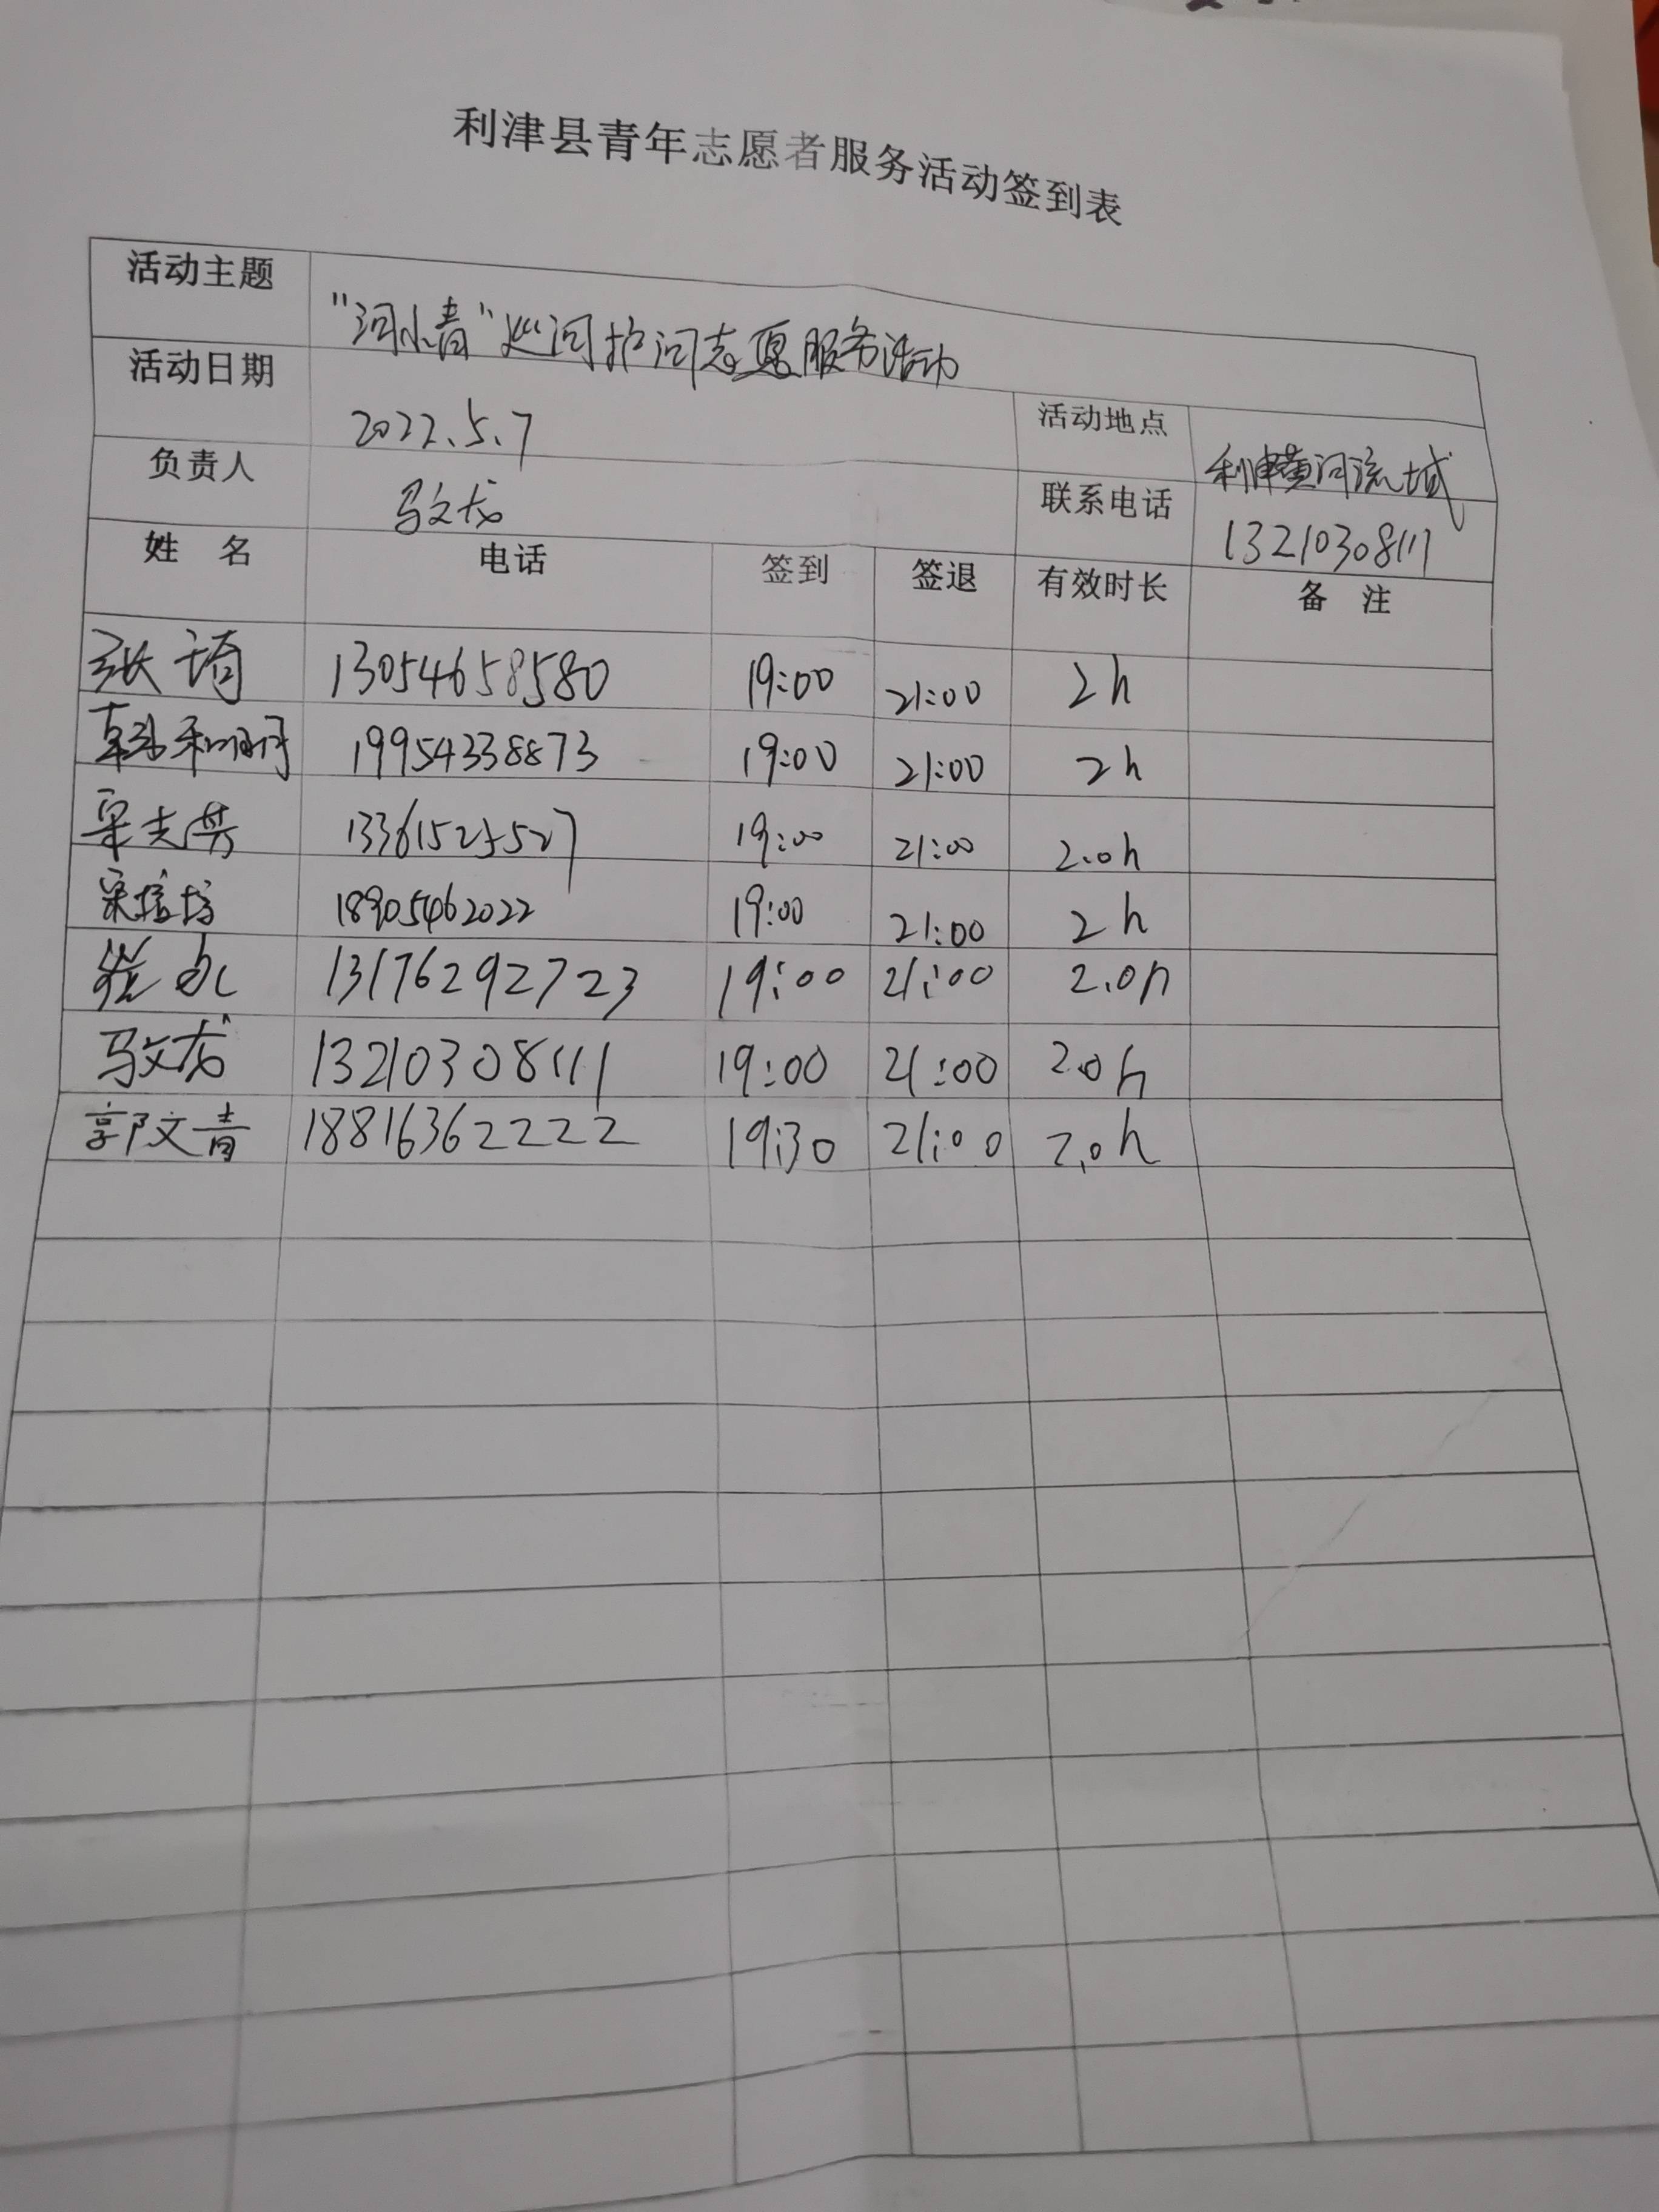 利津县青年志愿者服务活动签到表
活动主题 "河小青"巡河护河志愿服务活动
活动日期 2022.5.7 活动地点 利津黄河流域
负责人 马文龙 联系电话 13210308111
姓 名 电话 签到 签退 有效时长 备 注
张 琦 13054658580 19:00 21:00 2h
韩利明 19954338873 19:00 21:00 2h
13361525527 19:00 21:00 2.0h
宋培培 18905462022 19:00 21:00 2h
13176292723 19:00 21:00 2.0h
马文龙 13210308111 19:00 21:00 2.0h
郭文青 18816362222 19:30 21:00 2.0h